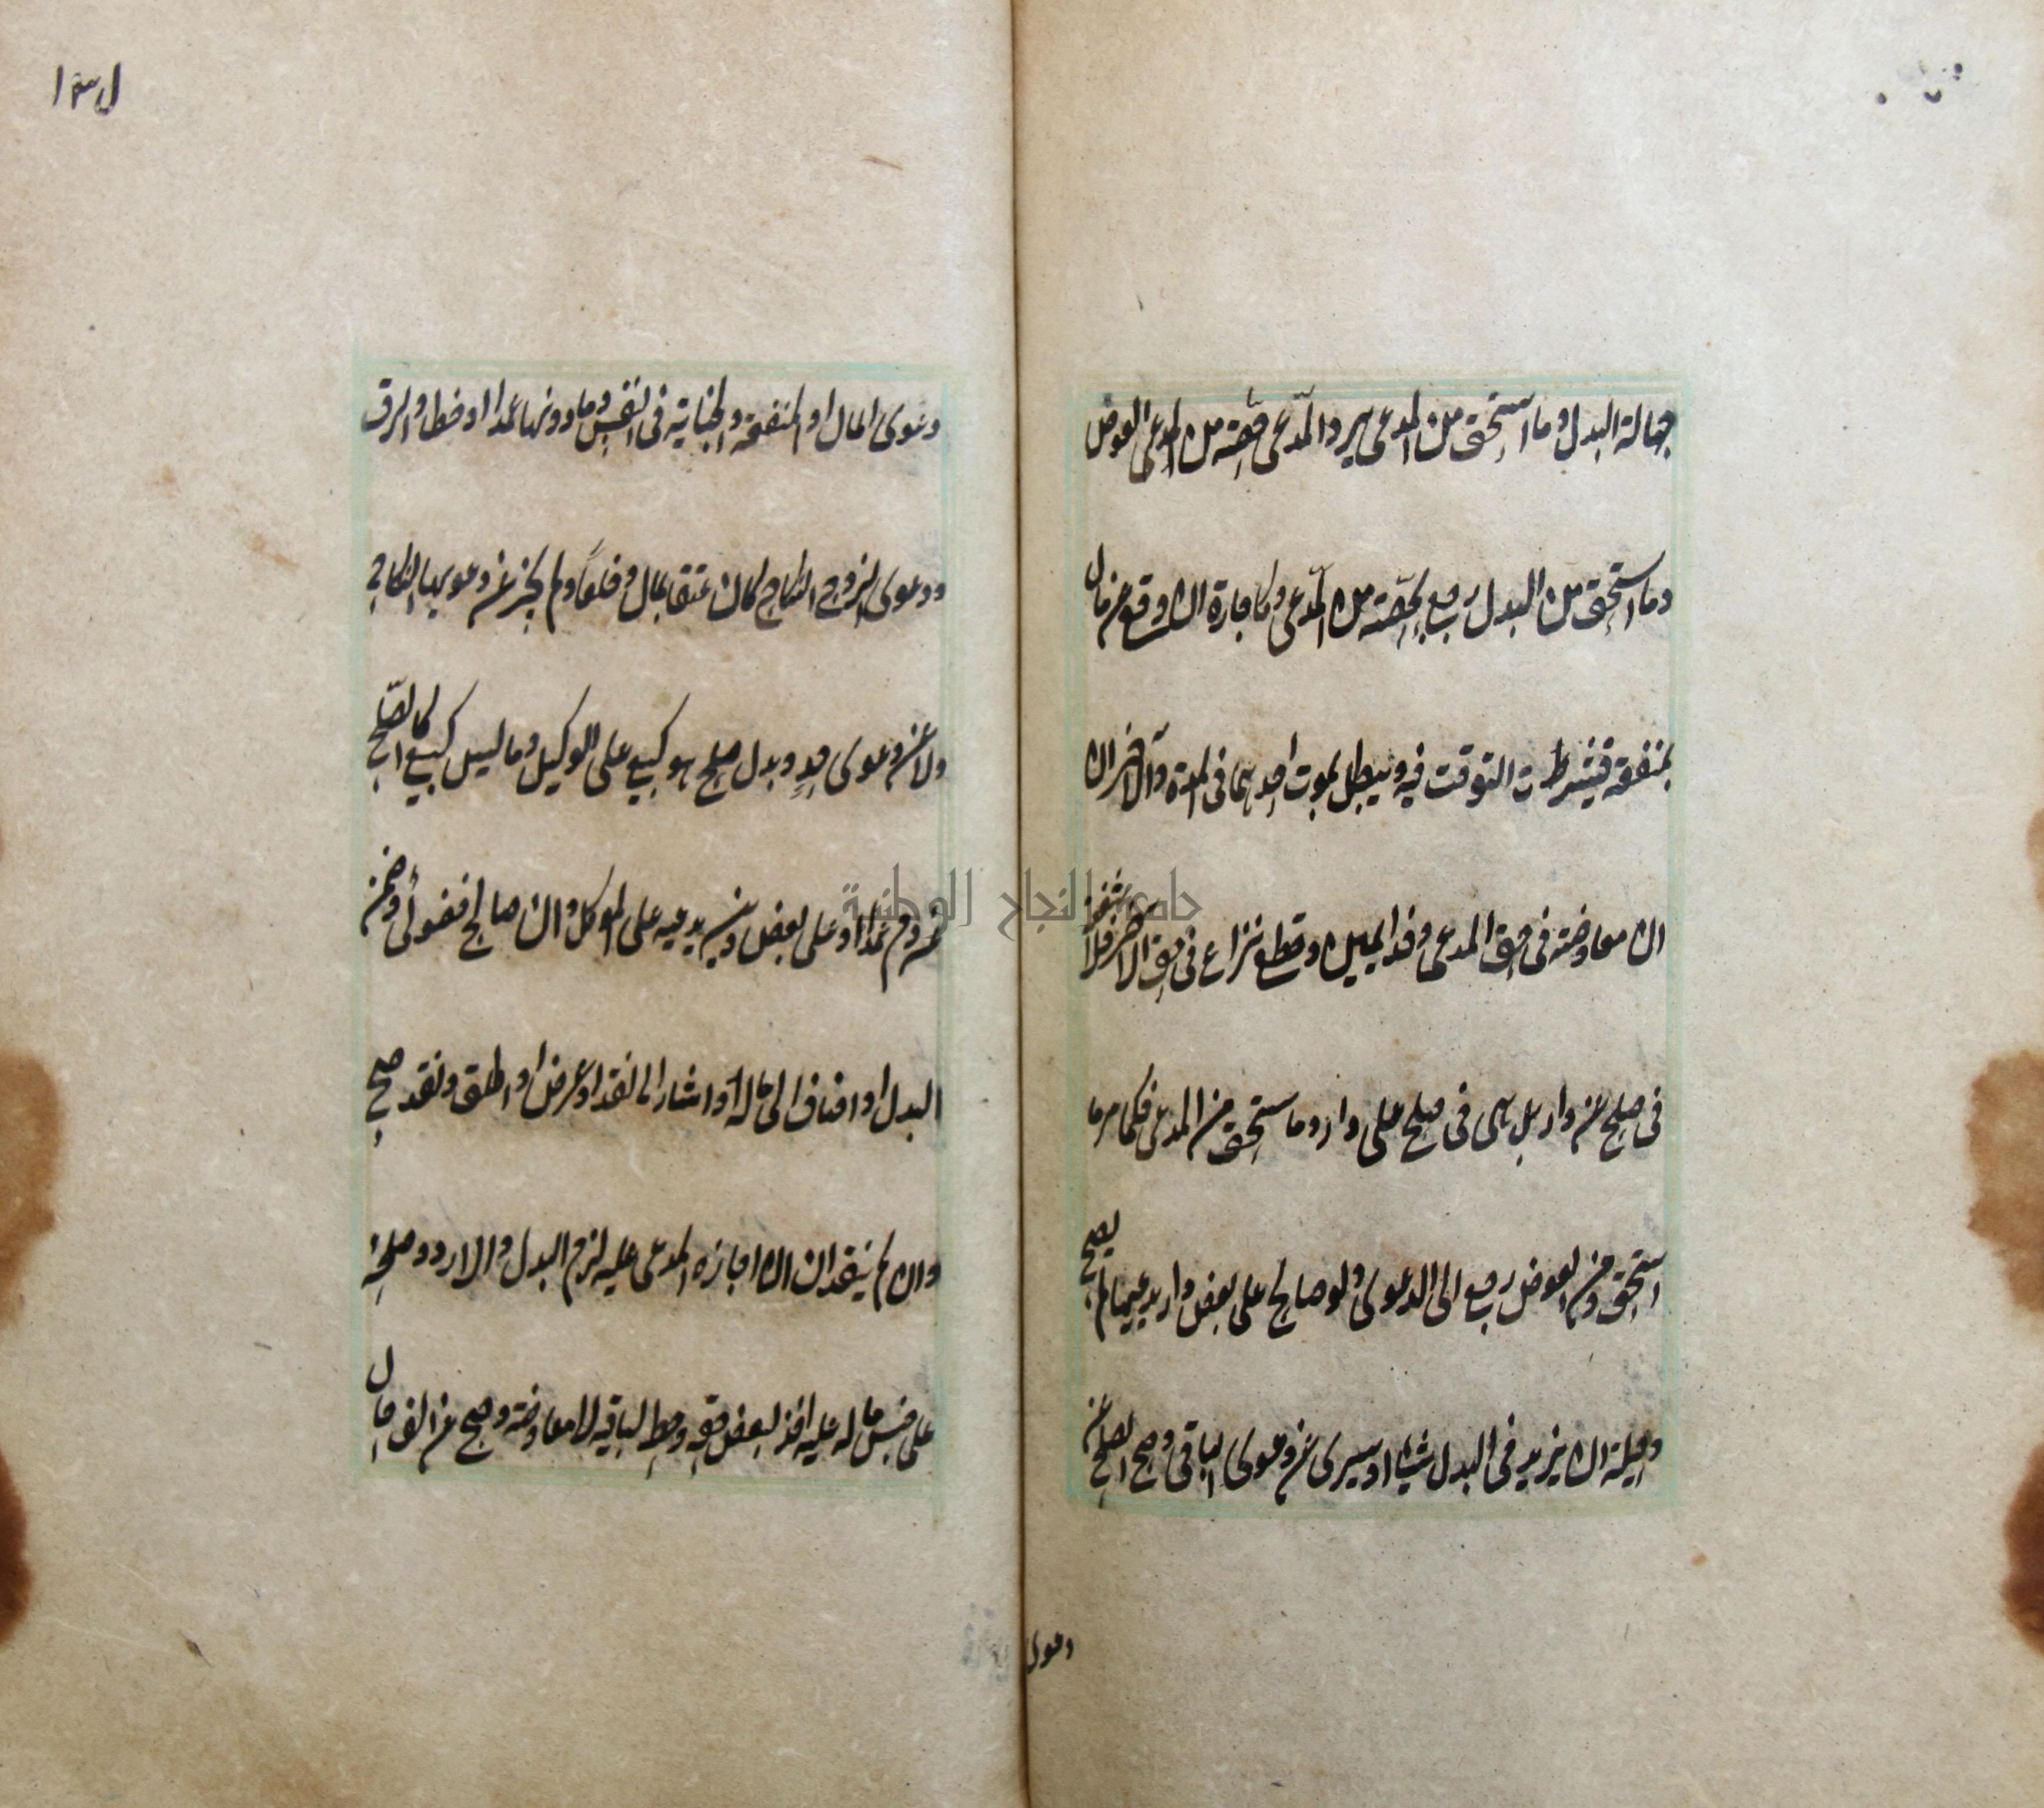 جهالة البدل وما استحق من المدعى يرد المدعى حصته من العوض
وما استحق من البدل رجع بحصته من المدعى وكاجارة ان وقع عن مال
بمنفعة فيشترط التوقيت فيه ويبطل بموت احدهما فى المدة والاخران
ان معاوضة فى حق المدعى وفداء يمين وقطع نزاع فى حق الآخر فلا شفعة
فى صلح عن دار بل هى فى صلح على دار وما استحق من المدعى فكما مر وما
استحق من العوض رجع الى الدعوى ولو صالح على بعض دار يدعيها لم يصح
وحيلة ان يزيد فى البدل شيئا او يبرى عن دعوى الباقى وصح الصلح عن
دعوى
ل ١٣١
دعوى المال او المنفعة والجناية فى النفس وما دونها عمدا او خطا والرق
ودعوى الزوج النكاح كان عتقا بمال وخلعا ولم يجز عن دعويها النكاح
ولا عن دعوى حد وبدل صلح هو كبيع على الوكيل وما ليس كبيع كالصلح
عن دم عمدا او على بعض دين يدعيه على الموكل وان صالح فضولى وضمن
البدل او اضاف الى ماله او اشار الى نقد او عرض او اطلق ونقد صح
وان لم ينقد ان اجازه المدعى عليه لزم البدل والا رد وصلحه
على جنس ماله عليه اخذ لبعض حقه وحط لباقيه لا معاوضة وصح عن الف حال
جامعة النجاح الوطنية